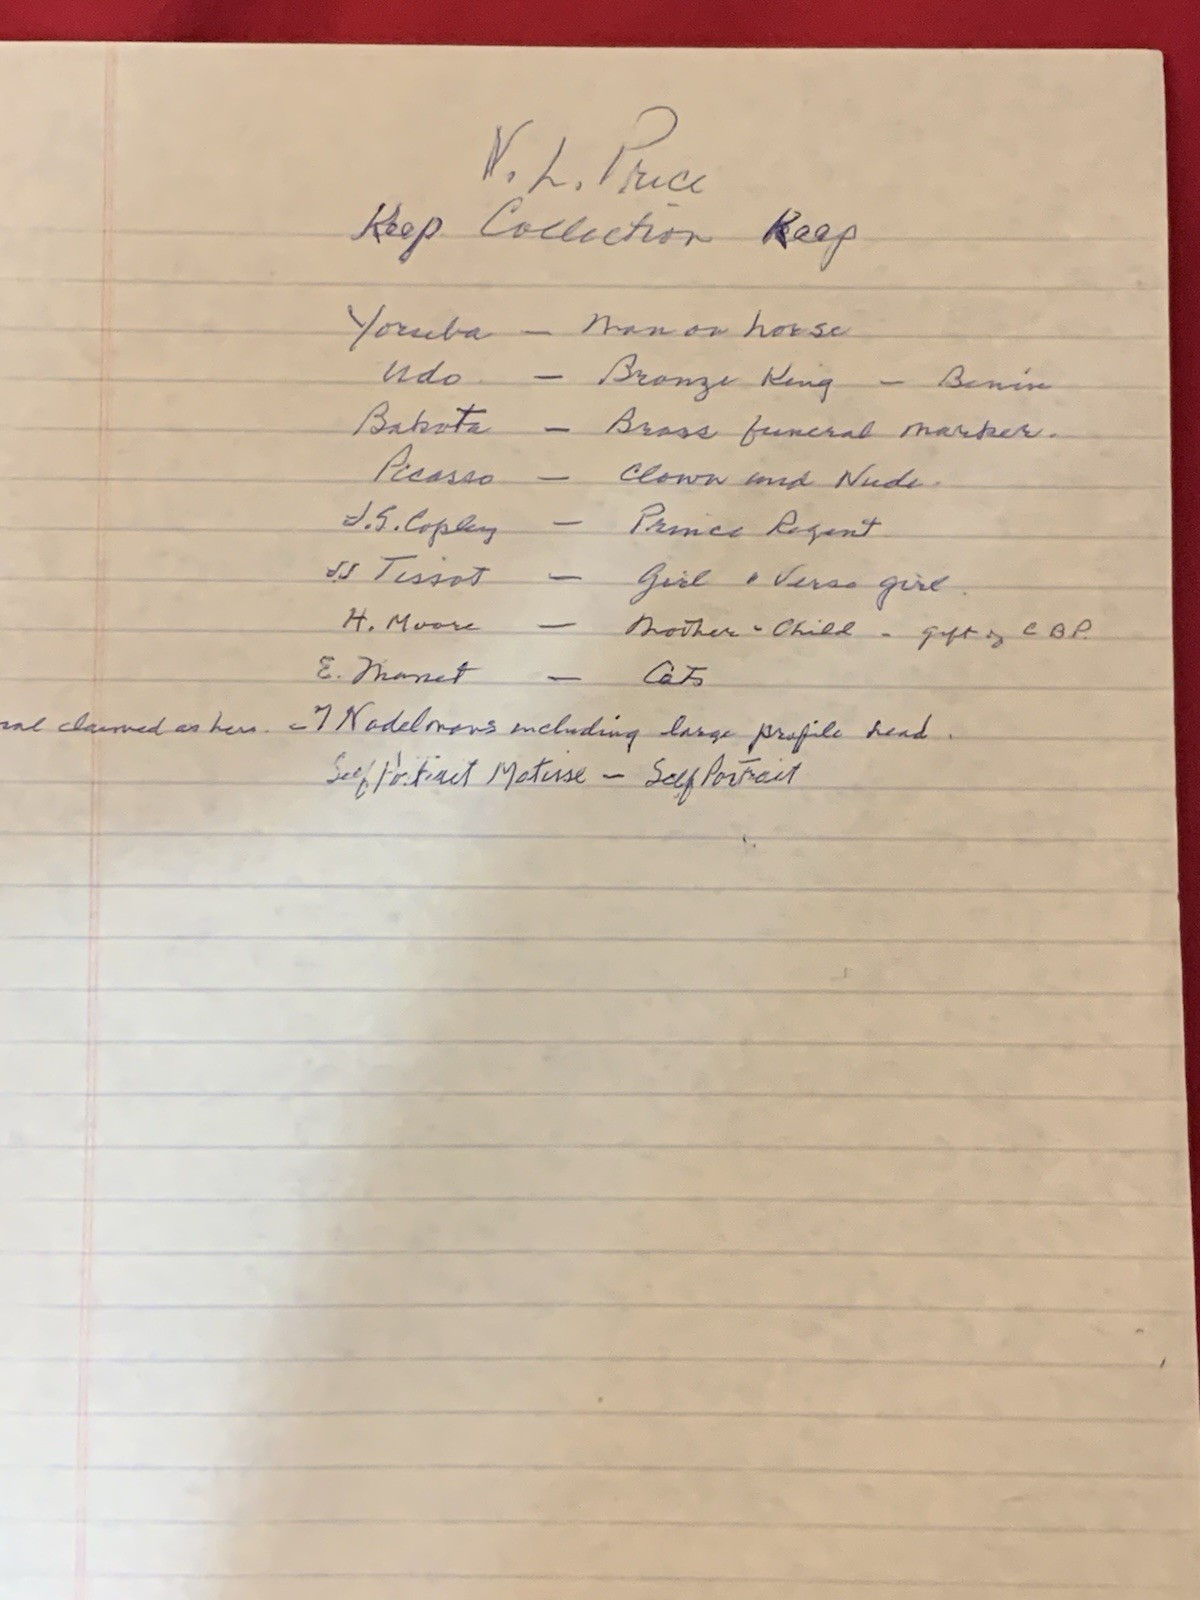 N. L. Price
Keep Collection Keep
Yoruba — Man on horse
Udo — Bronze King — Benin
Bakota — Brass funeral marker.
Picasso — Clown and Nude.
J.S. Copley — Prince Regent
JJ Tissot — Girl • Verso girl.
H. Moore — Mother - Child - gift of C B P.
E. Manet — Cats
claimed as hers. - 7 Nadelmans including large profile head.
Self Portrait Matisse — Self Portrait